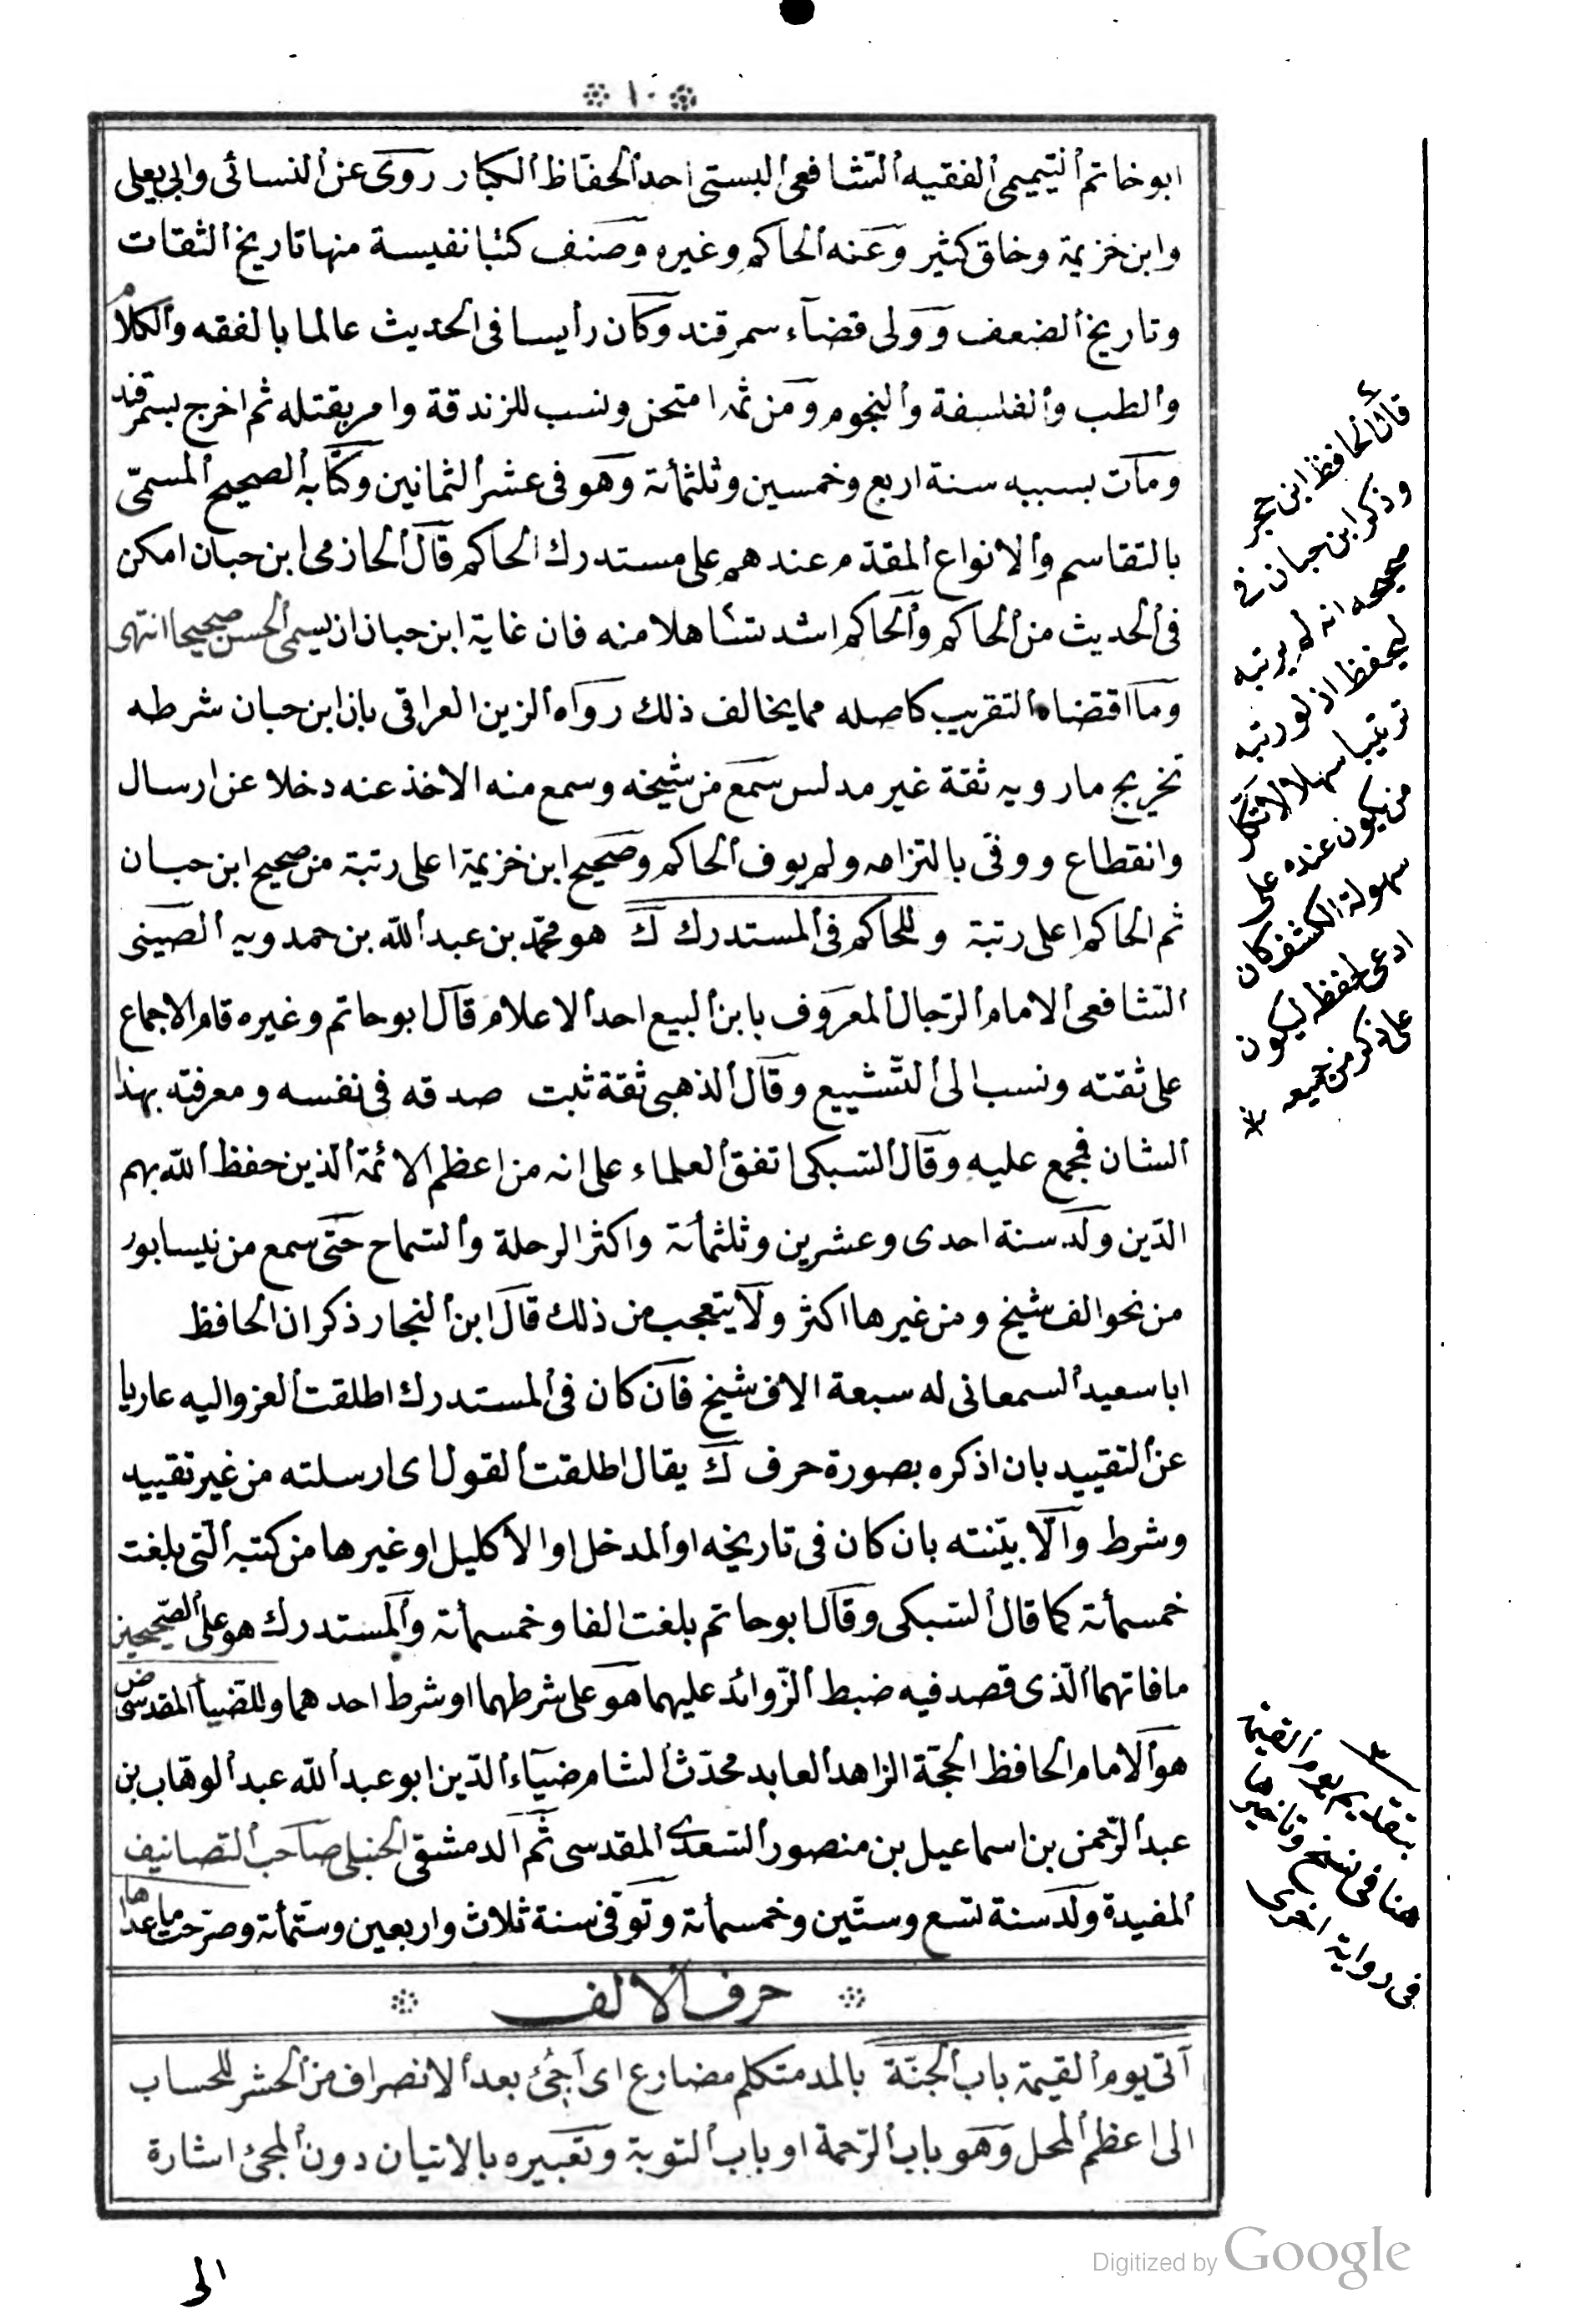 ١٠
ابو خاتم التيميمى الفقيه الشافعى البستى احد الحفاظ الكبار روى عن النسائى وابى يعلى
وابن خزيمة وخلق كثير وعنه الحاكم وغيره وصنف كتبا نفيسة منها تاريخ الثقات
وتاريخ الضعف وولى قضآء سمرقند وكان رأيسا فى الحديث عالما بالفقه والكلام
والطب والفلسفة والنجوم ومن ثمه امتحن ونسب للزندقة وامر بقتله ثم اخرج بسمرقند
ومات بسببه سنة اربع وخمسين وثلثمأئة وهو فى عشر الثمانين وكتابه الصحيح المسمّى
بالتقاسم والانواع المقدم عندهم على مستدرك الحاكم قال الحازمى ابن حبان امكن
فى الحديث من الحاكم والحاكم اشد تساهلا منه فان غاية ابن حبان ان يسمى الحسن صحيحا انتهى
وما اقتضاه التقريب كاصله مما يخالف ذلك رواه الزين العراقى بان ابن حبان شرطه
تخريج مارويه ثقة غير مدلس سمع من شيخه وسمع منه الاخذ عنه دخلا عن ارسال
وانقطاع ووفى بالتزامه ولم يوف الحاكم وصحيح ابن خزيمة اعلى رتبة من صحيح ابن حبان
ثم الحاكم اعلى رتبة وللحاكم فى المستدرك ك هو محمد بن عبد الله بن حمدويه الصينى
الشافعى الامام الرحال المعروف بابن البيع احد الاعلام قال ابو حاتم وغيره قام الاجماع
على ثقته ونسب الى التشييع وقال الذهبى ثقة ثبت صدقه فى نفسه ومعرفته بهذا
الشان فمجمع عليه وقال السبكى اتفق العلماء على انه من اعظم الائمة الذين حفظ الله بهم
الدّين ولد سنة احدى وعشرين وثلثمأئة واكثر الرحلة والسماح حتى سمع من نيسابور
من نحو الف شيخ ومن غيرها اكثر ولا يتعجب من ذلك قال ابن النجار ذكر ان الحافظ
ابا سعيد السمعانى له سبعة الاف شيخ فان كان فى المستدرك اطلقت العزو اليه عاريا
عن التقييد بان اذكره بصورة حرف ك يقال اطلقت القول اى ارسلته من غير تقييد
وشرط والّا بيّنته بان كان فى تاريخه او المدخل او الاكليل او غيرها من كتبه الّتى بلغت
خمسمأئة كما قال السبكى وقال ابو حاتم بلغت الفا وخمسمأئة والمستدرك هو على الصّحيحين
مافاتهما الّذى قصد فيه ضبط الزّوائد عليهما هو على شرطهما او شرط احدهما وللضّيأ المقدسى ض
هو الامام الحافظ الحجّة الزاهد العابد محدّث الشام ضيآء الدّين ابو عبد الله عبد الوهّاب بن
عبد الرّحمن بن اسماعيل بن منصور السّعدى المقدسى ثم الدمشقى الحنبلى صاحب التصانيف
المفيدة ولد سنة تسع وستّين وخمسمأئة وتوفى سنة ثلاث واربعين وستّمأئة وصرّحت ما عداها
حرف الالف
آتى يوم القيمة باب الجنّة بالمد متكلم مضارع اى اجئ بعد الانصراف من الحشر للحساب
الى اعظم المحل وهو باب الرّحمة او باب التوبة وتعبيره بالاتيان دون المجئ اشارة
الى
قال الحافظ ابن حجر
وذكر ابن حبان فى
صحيحه انه لم يرتبه
ليحفظ اذ لو رتبه
ترتيبا سهلا لاتكل
من يكون عنده على
سهولة الكشف كان
ادعى لحفظه ليكون
على ذكر من جميعه
٣
بتقديم يوم القيمة
هنا فى نسخ وتأخيرها
فى رواية اخرى
Digitized by Google